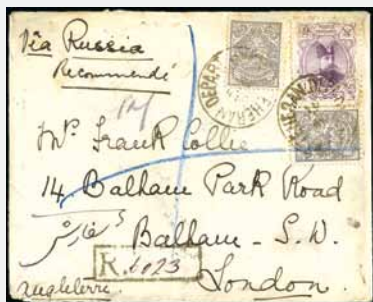 Via Russia
Recommendé
TEHERAN DEPART
TEHERAN DEPART
Mr. Frank Collie
14 Balham Park Road
Balham - S.W.
سفارشی
R. 6023
London.
Angleterre